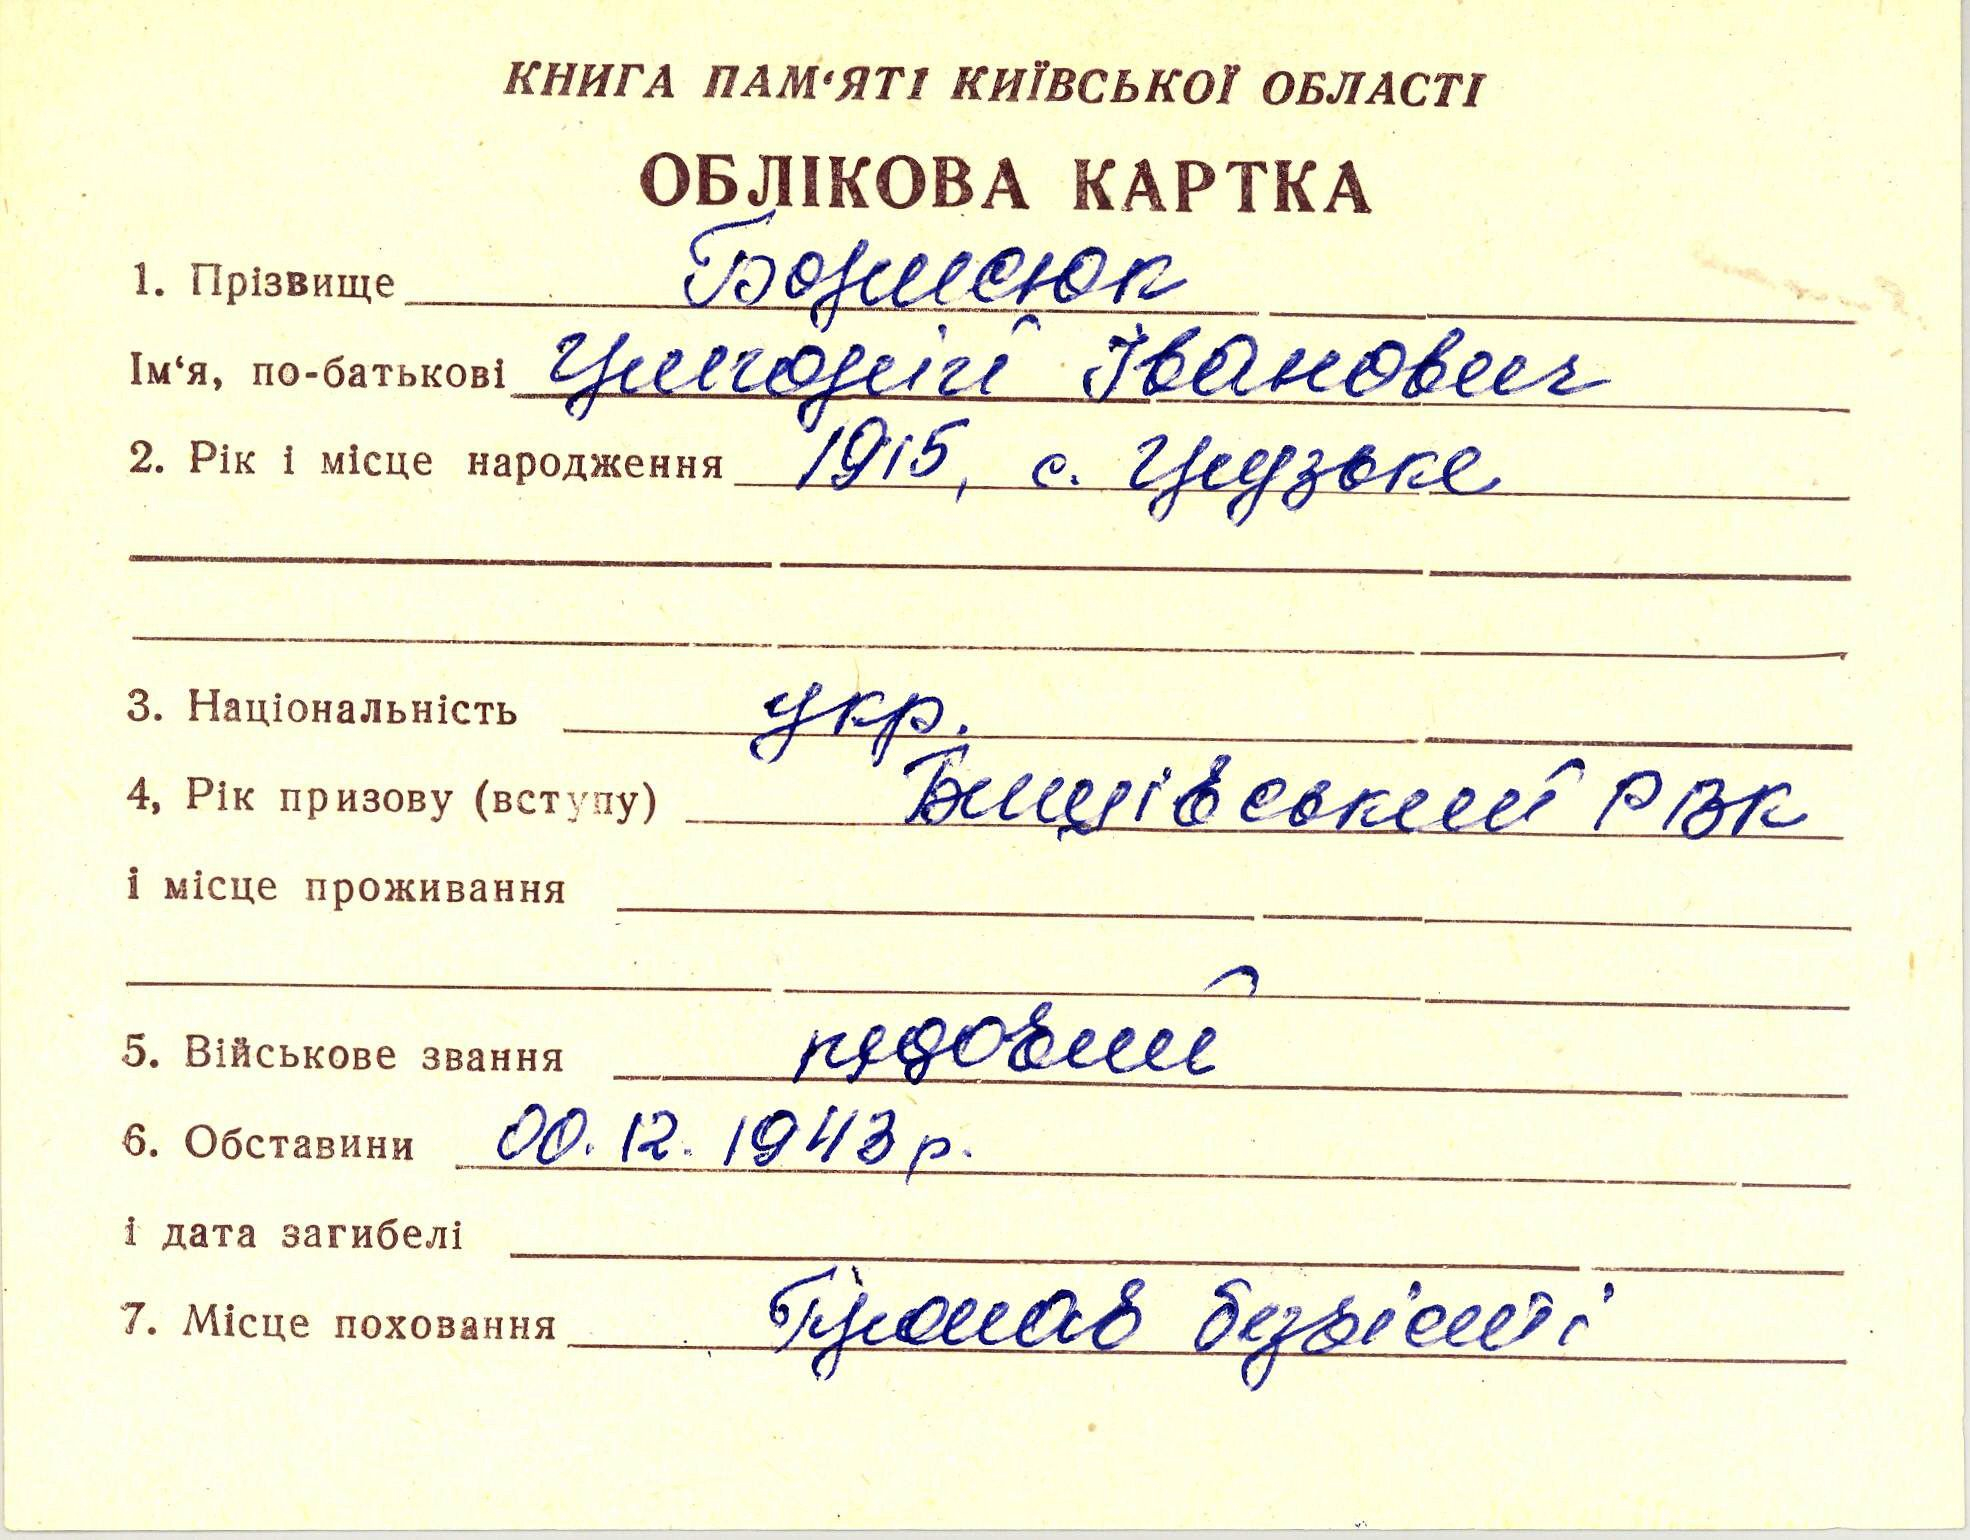 КНИГА ПАМ‘ЯТІ КИЇВСЬКОЇ ОБЛАСТІ
ОБЛІКОВА КАРТКА
1. Прізвище Борисюк
Ім‘я, по-батькові Григорій Іванович
2. Рік і місце народження 1915, с. Грузьке
3. Національність укр.
4, Рік призову (вступу) Бишівський РВК
і місце проживання
5. Військове звання рядовий
6. Обставини 00.12.1943 р.
і дата загибелі
7. Місце поховання Пропав безвісті